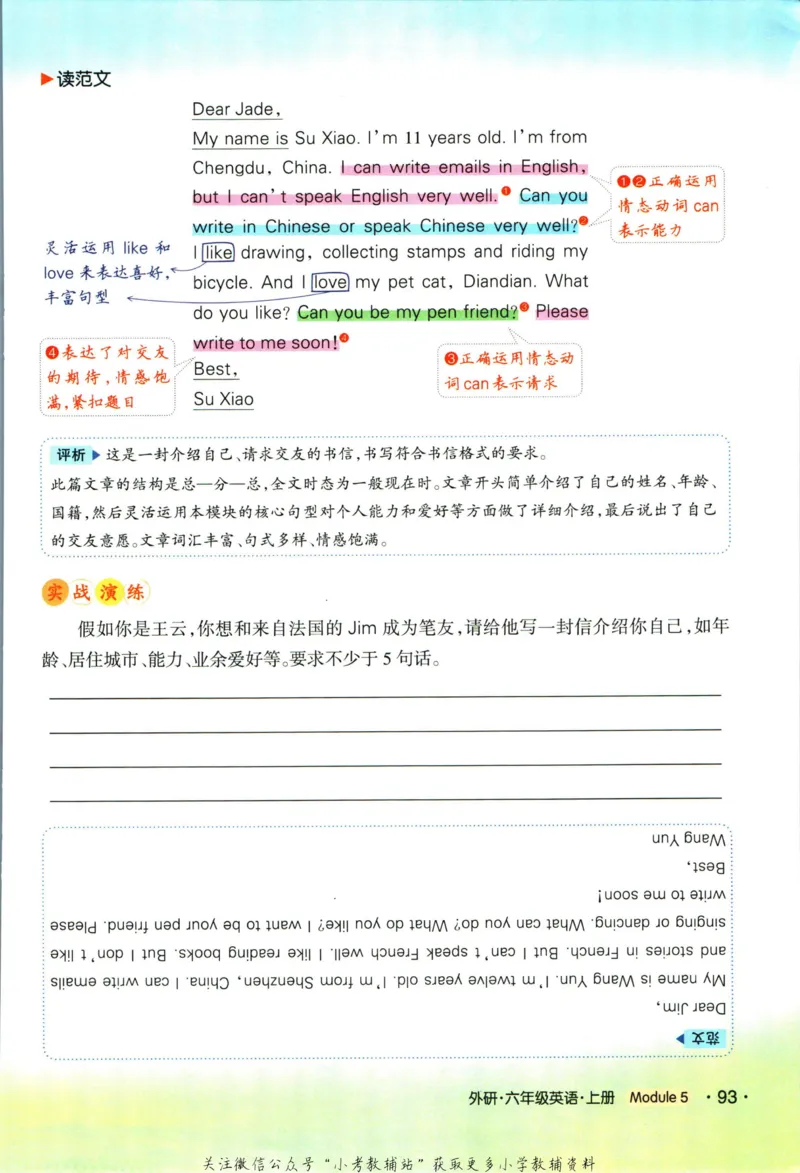 ▶读范文
Dear Jade,
My name is Su Xiao. I'm 11 years old. I'm from
Chengdu, China. I can write emails in English,
but I can't speak English very well.❶ Can you
write in Chinese or speak Chinese very well?❷
I like drawing, collecting stamps and riding my
bicycle. And I love my pet cat, Diandian. What
do you like? Can you be my pen friend?❸ Please
write to me soon!❹
Best,
Su Xiao
❶❷正确运用
情态动词 can
表示能力
灵活运用 like 和
love 来表达喜好,
丰富句型
❹表达了对交友
的期待,情感饱
满,紧扣题目
❸正确运用情态动
词 can 表示请求
评析▶这是一封介绍自己、请求交友的书信,书写符合书信格式的要求。
此篇文章的结构是总—分—总,全文时态为一般现在时。文章开头简单介绍了自己的姓名、年龄、
国籍,然后灵活运用本模块的核心句型对个人能力和爱好等方面做了详细介绍,最后说出了自己
的交友意愿。文章词汇丰富、句式多样、情感饱满。
实战演练
假如你是王云,你想和来自法国的 Jim 成为笔友,请给他写一封信介绍你自己,如年
龄、居住城市、能力、业余爱好等。要求不少于 5 句话。
范文▶
Dear Jim,
My name is Wang Yun. I'm twelve years old. I'm from Shenzhen, China. I can write emails
and stories in French. But I can't speak French well. I like reading books. But I don't like
singing or dancing. What can you do? What do you like? I want to be your pen friend. Please
write to me soon!
Best,
Wang Yun
外研·六年级英语·上册 Module 5 ·93·
关注微信公众号“小考教辅站”获取更多小学教辅资料